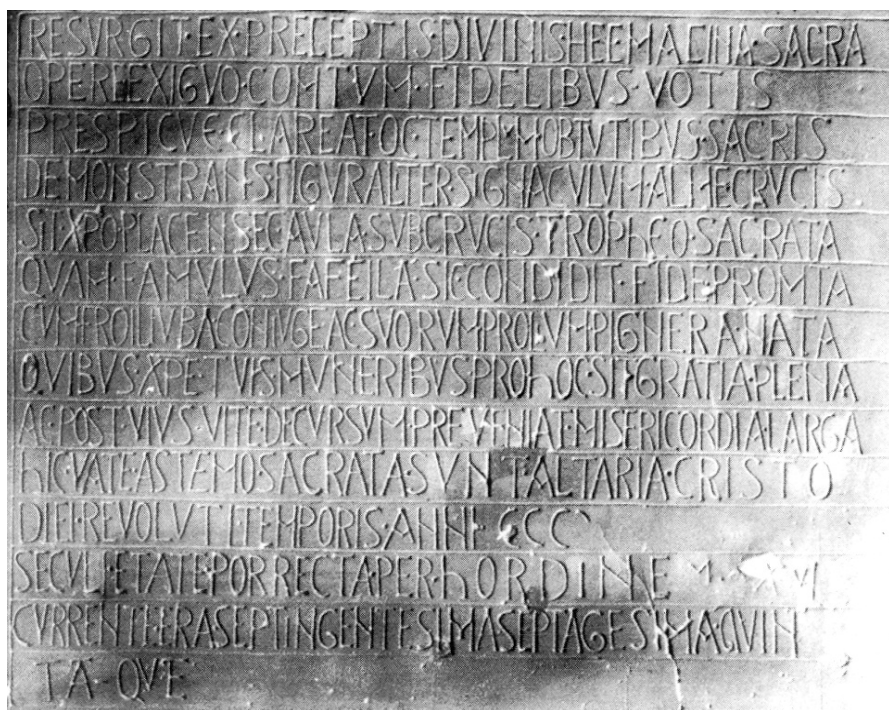 RESVRGIT·EX·PRECEPTIS·DIVINIS·HEC·MACINA·SACRA
OPERE·EXIGVO·COMTVM·FIDELIBVS·VOTIS
PRESPICVE·CLAREAT·OC·TEMPLVM·OBTVTIBVS·SACRIS
DEMONSTRANS·FIGVRALITER·SIGNACVLVM·ALME·CRVCIS
SIT·XPO·PLACENS·EC·AVLA·SVB·CRVCIS·TROPHEO·SACRATA
QVAM·FAMVLVS·FAFEILA·SIC·CONDIDIT·FIDE·PROMTA
CVM·FROILIVBA·CONIVGE·AC·SVORVM·PROLVM·PIGNERA·NATA
QVIBVS·XPE·TVIS·MVNERIBVS·PRO·HOC·SIT·GRATIA·PLENA
AC·POST·VIVS·VITE·DECVRSVM·PREVENIAT·MISERICORDIA·LARGA
HIC·VATE·ASTEMO·SACRATA·SVNT·ALTARIA·CRISTO
DIEI·REVOLVTI·TEMPORIS·ANNI·CCC
SECVL·ETATE·PORRECTA·PER·HORDINE
CVRRENTE·ERA·SEPTINGENTESIMA·SEPTAGESIMA·QVIN
TA·QVE